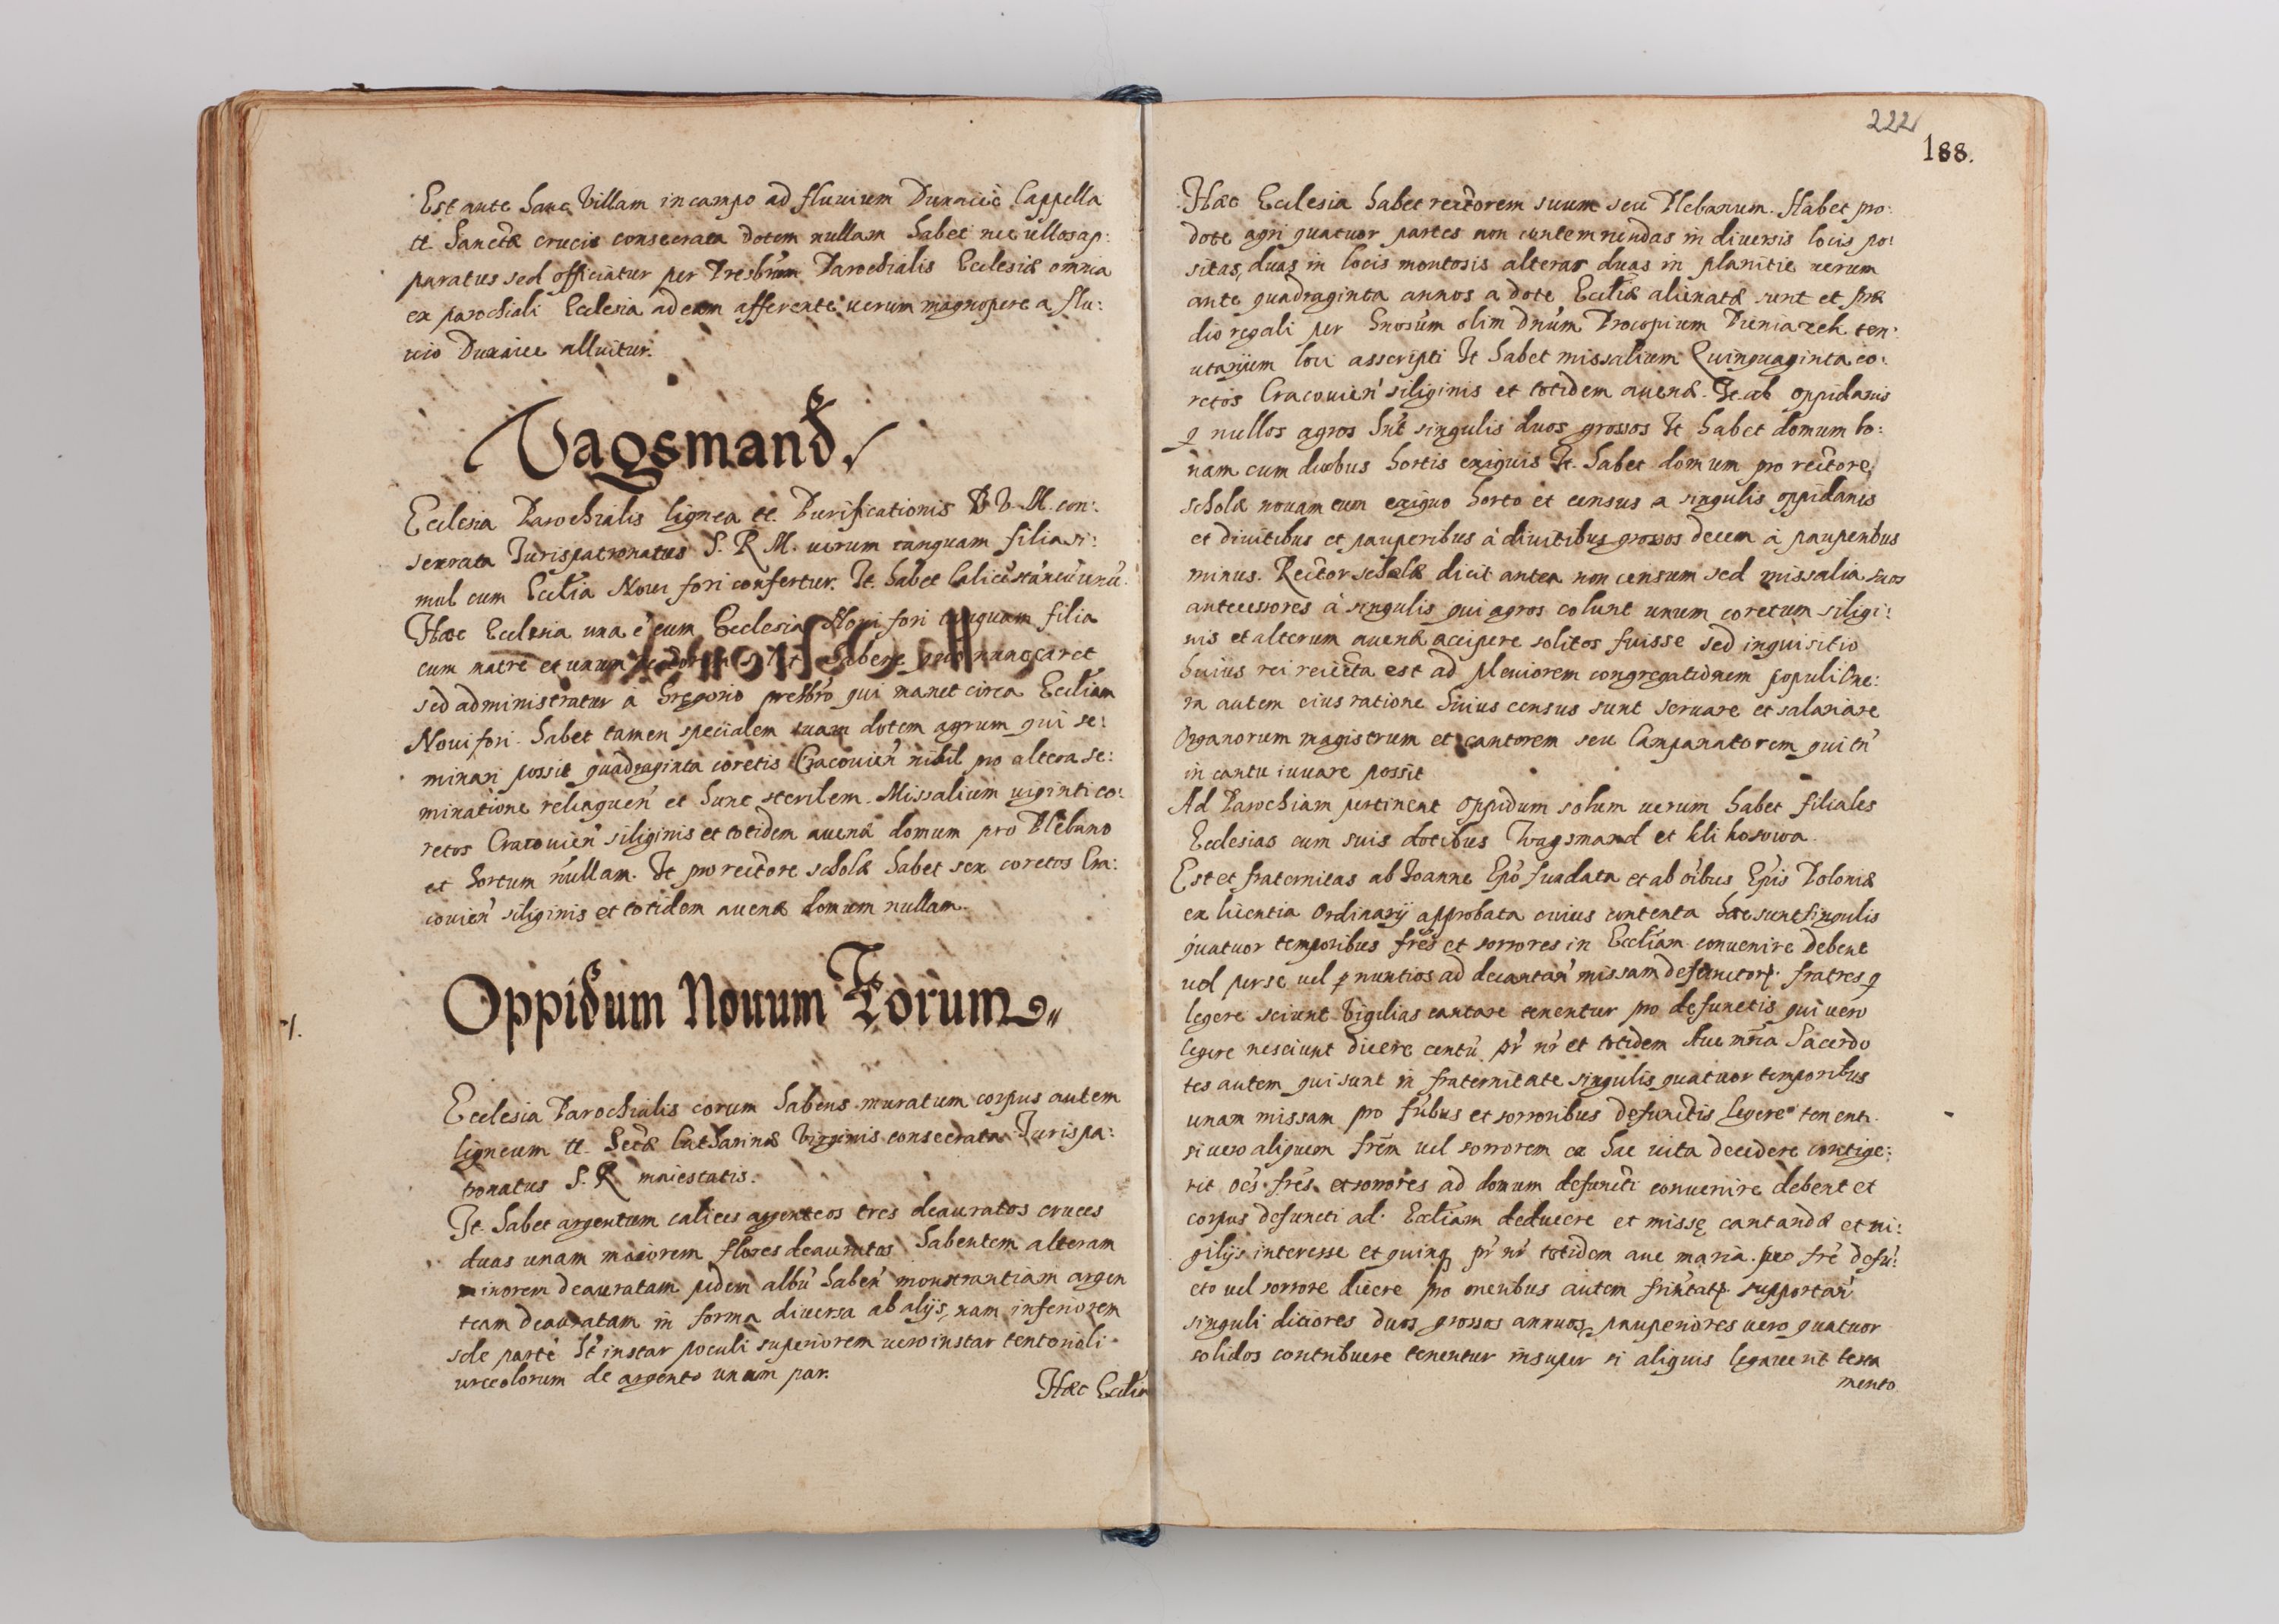 Est ante hanc Villam in campo ad fluuium Dunaiec Cappella
tt. Sanctæ crucis consecrata dotem nullam habet nec ullos ap:
paratus sed officiatur per Presbrum Parochialis Ecclesiæ omnia
ex parochiali Ecclesia ad eam afferente uerum magnopere a flu:
uio Dunaiec alluitur.
Vagsmand
Ecclesia Parochialis lignea tt. Purificationis B V. M. con:
secrata Jurispatronatus S. R M. uerum tanquam filia si:
mul cum Ecclia Noui fori confertur. It. habet Calicē stāneū unū.
Hæc Ecclesia una ē cum Ecclesia Noui fori tanquam filia
cum matre et unum habere nunc caret
sed administratur a Gregorio presbro qui manet circa Eccliam
Noui fori. habet tamen specialem suam dotem agrum qui se:
minari possit quadraginta coretis Cracouien nihil pro altera se:
minatione relinquen et hunc sterilem. Missalium uiginti co:
retos Cracouien siliginis et totidem auenæ domum pro Plebano
et hortum nullam. It pro rectore scholæ habet sex coretos Cra:
couien siliginis et totidem auenæ domum nullam.
Oppidum Nouum Forum
Ecclesia Parochialis corum habens muratum corpus autem
ligneum tt. Sctæ Catharinæ Virginis consecrata Jurispa:
tronatus S. R maiestatis.
It. habet argentum calices argenteos tres deauratos cruces
duas unam maiorem flores deauratos habentem alteram
minorem deauratam pedem albū haben monstrantiam argen
team deauratam in forma diuersa ab alijs, nam inferiorem
sde parte ht instar poculi superiorem uero instar tentorioli
urceolorum de argento unum par.
Hæc Ecclia
222
188.
Hæc Ecclesia habet rectorem suum seu Plebanum. Habet pro
dote agri quatuor partes non contemnendas in diuersis locis po:
sitas, duas in locis montosis alteras duas in planitie uerum
ante quadraginta annos a dote Eccliæ alienatæ sunt et præ
dio regali per Gnosum olim Dnum Procopium Pieniazek ten:
utarijum loci asscripti It habet missalium Quinquaginta co:
retos Cracouien siliginis et totidem auenæ. It ab oppidanis
q nullos agros hnt singulis duos grossos It habet domum bo:
nam cum duobus hortis exiguis It. habet domum pro rectore
scholæ nouam cum exiguo horto et census a singulis oppidanis
et diuitibus et pauperibus à diuitibus grossos decem à pauperibus
minus. Rector scholæ dicit antea non censum sed missalia suos
antecessores à singulis qui agros colunt unum coretum siligi:
nis et alterum auenæ accipere solitos fuisse sed inquisitio
huius rei reiecta est ad pleniorem congregationem populi One:
ra autem eius ratione huius census sunt seruare et salariare
Organorum magistrum et cantorem seu Campanatorem qui tn
in cantu iuuare possit
Ad Parochiam pertinent oppidum solum uerum habet filiales
Ecclesias cum suis dotibus Wagsmand et Klikosowa
Est et fraternitas ab Joanne Epo fundata et ab oibus Epis Poloniæ
ex licentia Ordinarij approbata cuius contenta hæc sunt singulis
quatuor temporibus fres et sorrores in Eccliam conuenire debent
uel per se uel p nuntios ad decantan missam defunctorum. fratres q
legere sciunt Vigilias cantare tenentur pro defunctis qui uero
legere nesciunt dicere centū pr nr et totidem Aue mria Sacerdo
tes autem qui sunt in fraternitate singulis quatuor temporibus
unam missam pro fribus et sorroribus defunctis legere tenent.
si uero aliquem frem uel sorrorem ex hac uita decedere contige:
rit oes fres et sorrores ad domum defuncti conuenire debent et
corpus defuncti ad Eccliam deducere et missę cantandæ et ui:
gilijs interesse et quinq pr nr totidem aue maria pro fre defū:
cto uel sorrore dicere pro oneribus autem frintatis supportan
singuli ditiores duos grossos annuos, pauperiores uero quatuor
solidos contribuere tenentur insuper si aliquis legauerit testa
mento